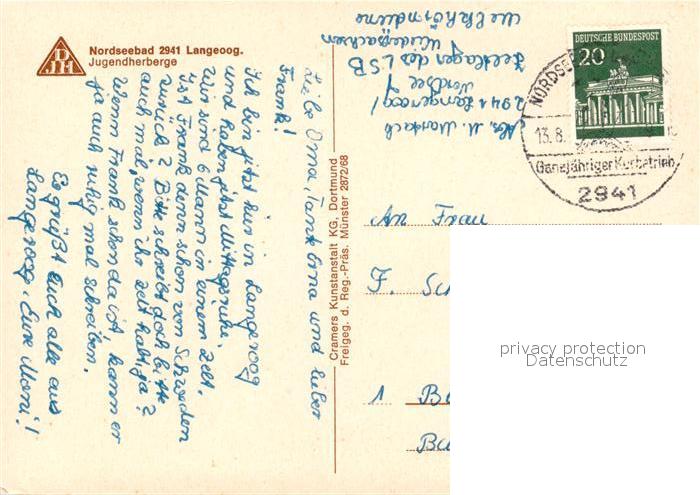 DJH
Nordseebad 2941 Langeoog.
Jugendherberge
Liebe Oma, Tante Erna und lieber
Frank!
Ich bin jetzt hier in Langeoog
und haben jetzt Mittagsruhe.
Wir sind 6 Mann in einem Zelt.
Ist Frank denn schon von Schweden
zurück? Bitte schreibt doch bitte
auch mal, wenn ihr Zeit habt, ja?
Wenn Frank schon da ist, kann er
ja auch ruhig mal schreiben.
Es grüßt Euch alle aus
Langeoog, Eure Moni!
Cramers Kunstanstalt KG, Dortmund
Freigeg. d. Reg.-Präs. Münster 2872/68
Abs. M.
2941 Langeoog/
Nordsee
Zeltlager des LSB
Niedersachsen
DEUTSCHE BUNDESPOST
20
NORDSE
13.8.
Ganzjähriger Kurbetrieb
2941
An Frau
F. Sc
1 B
privacy protection
Datenschutz